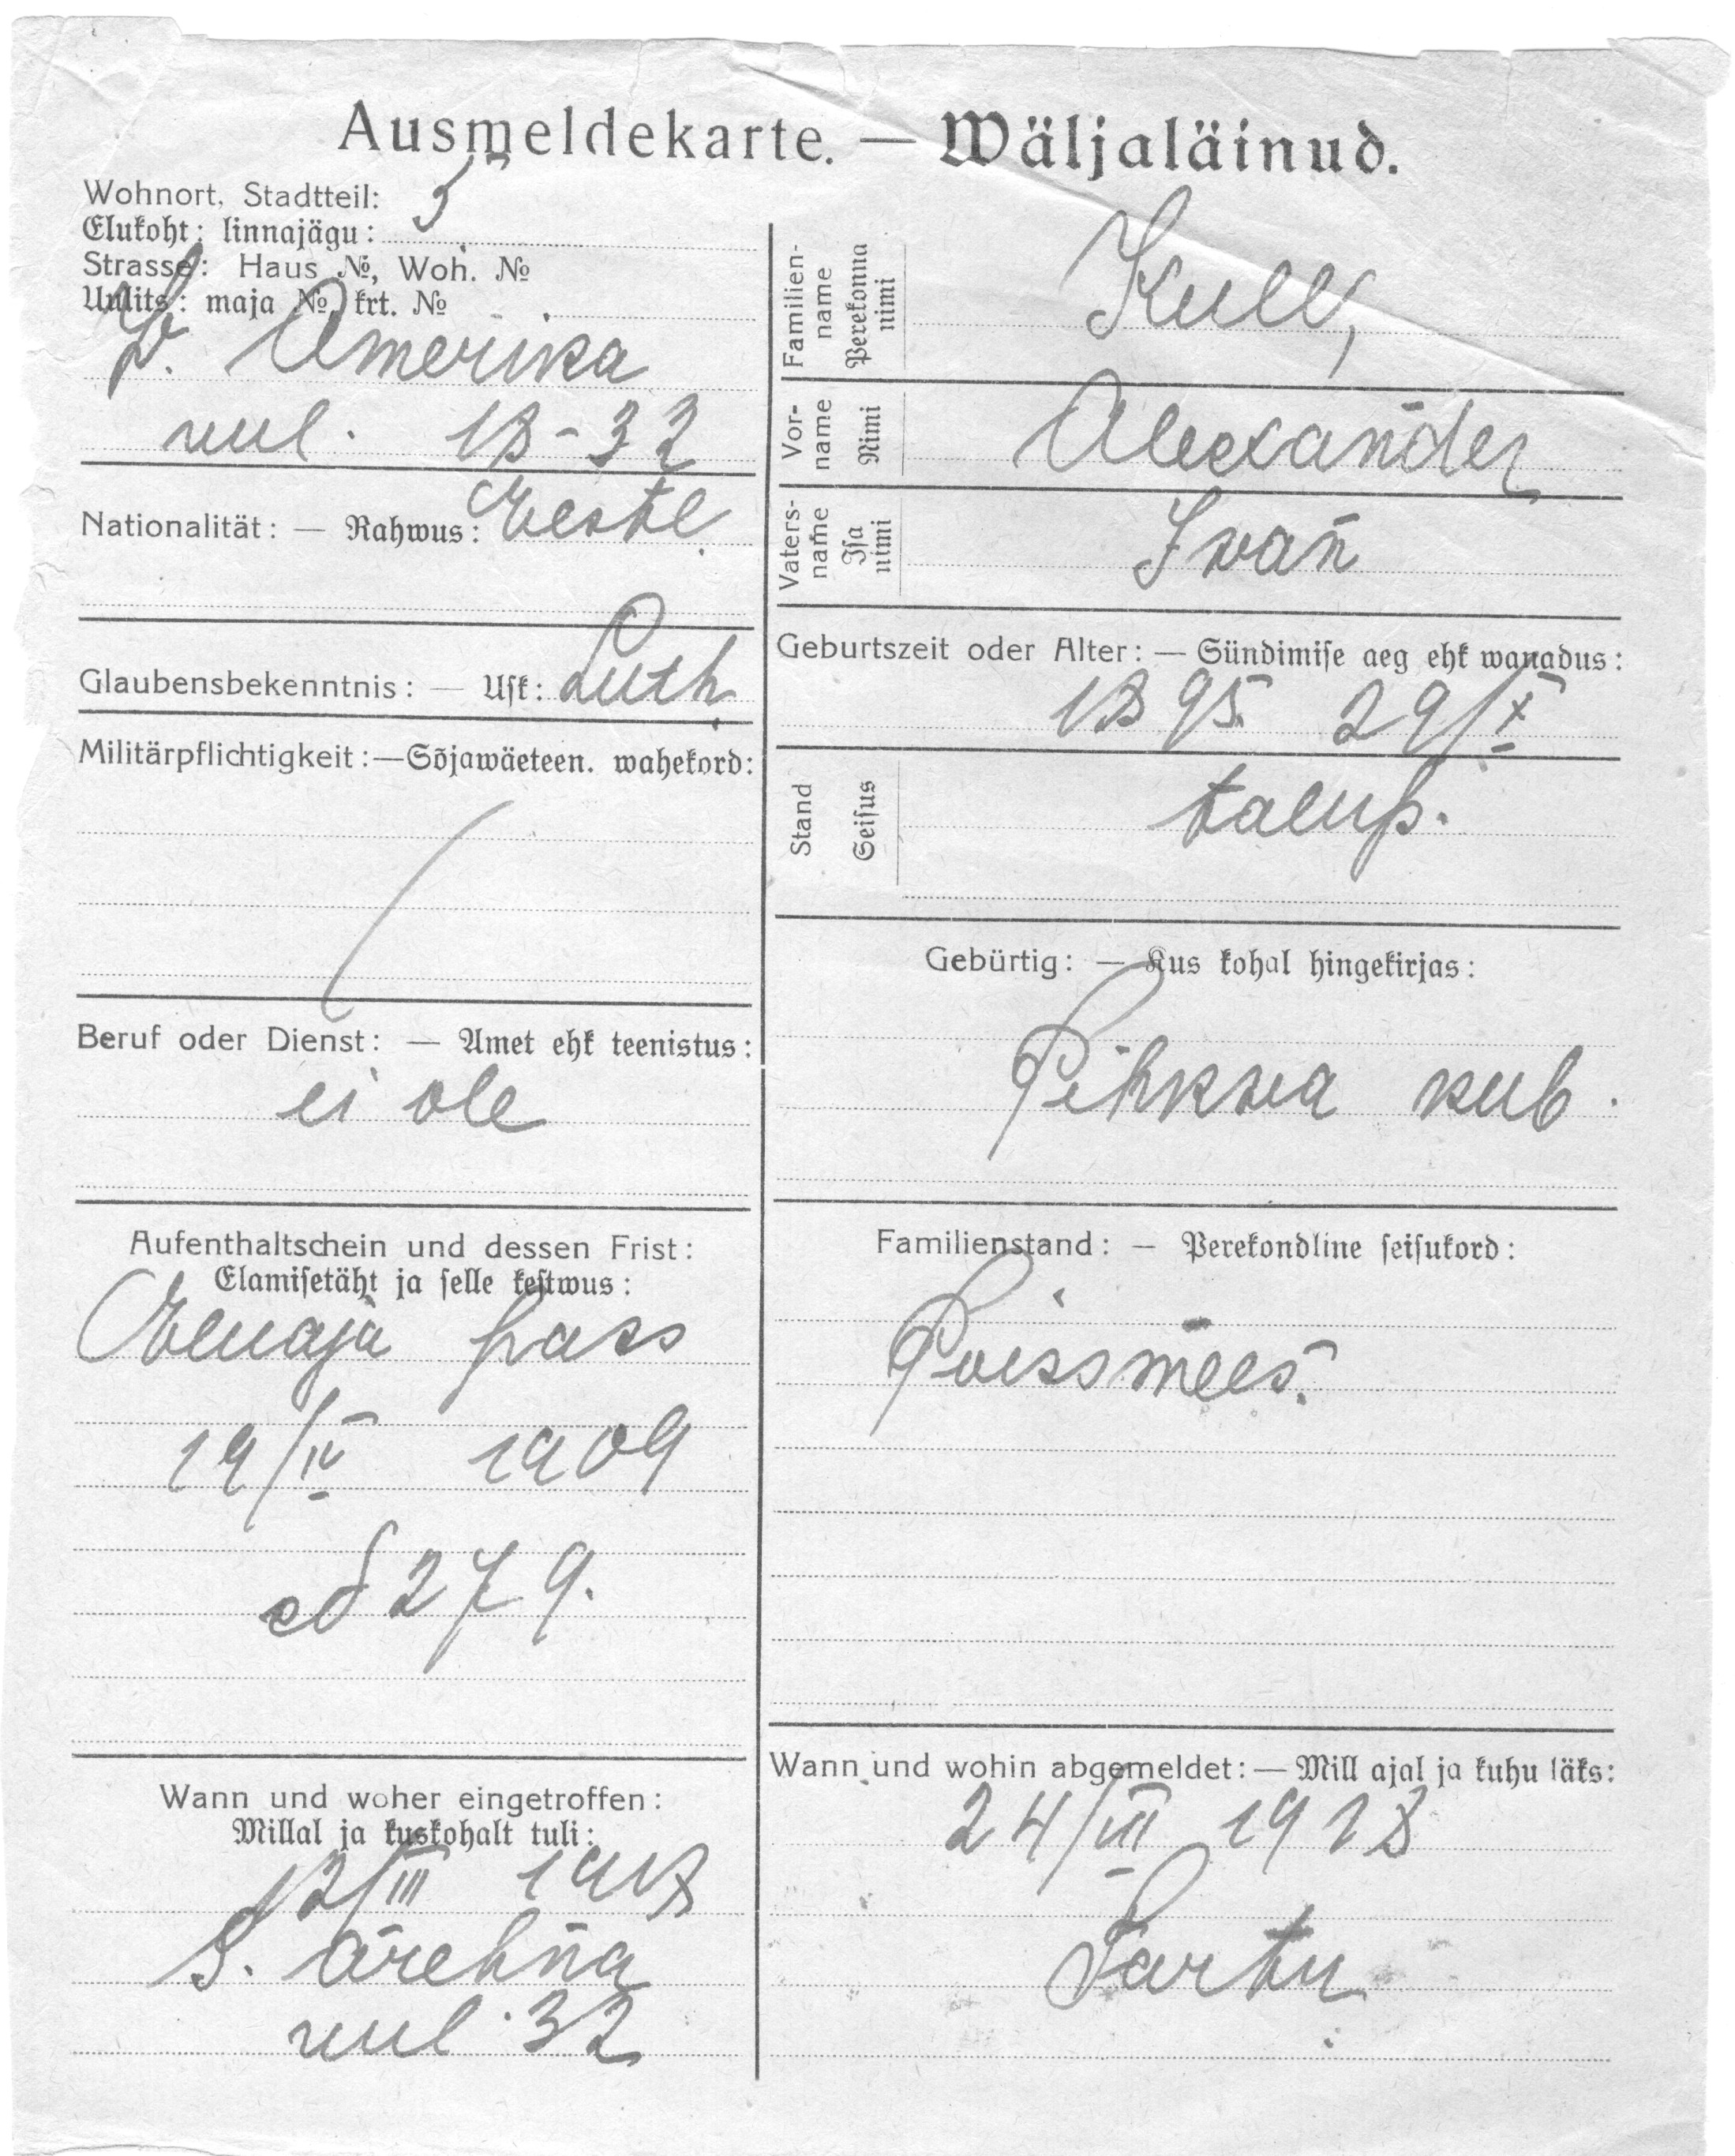 Ausmeldekarte. — Wäljaläinud.
Wohnort, Stadtteil: 5
Elukoht: linnajägu:
Strasse: Haus №, Woh. №
Uulits: maja № krt. №
S. Amerika
uul. 18-32
Nationalität: — Rahwus: Eestl.
Glaubensbekenntnis: — Usk: Luth.
Militärpflichtigkeit:—Sõjawäeteen. wahekord:
Beruf oder Dienst: — Amet ehk teenistus:
ei ole
Aufenthaltschein und dessen Frist:
Elamisetäht ja selle kestwus:
Eluaja pass
19/IV 1909
279.
Wann und woher eingetroffen:
Millal ja kuskohalt tuli:
12/III 1918
S. Arehna
uul. 32
Familien-name Perekonna nimi
Kull,
Vor-name Nimi
Alexander
Vaters-name Isa nimi
Iwan
Geburtszeit oder Alter: — Sündimise aeg ehk wanadus:
1895 29/X
Stand Seisus
talup.
Gebürtig: — Kus kohal hingekirjas:
Pihkwa kub.
Familienstand: — Perekondline seisukord:
Poissmees.
Wann und wohin abgemeldet: — Mill ajal ja kuhu läks:
24/III 1918
Tartu